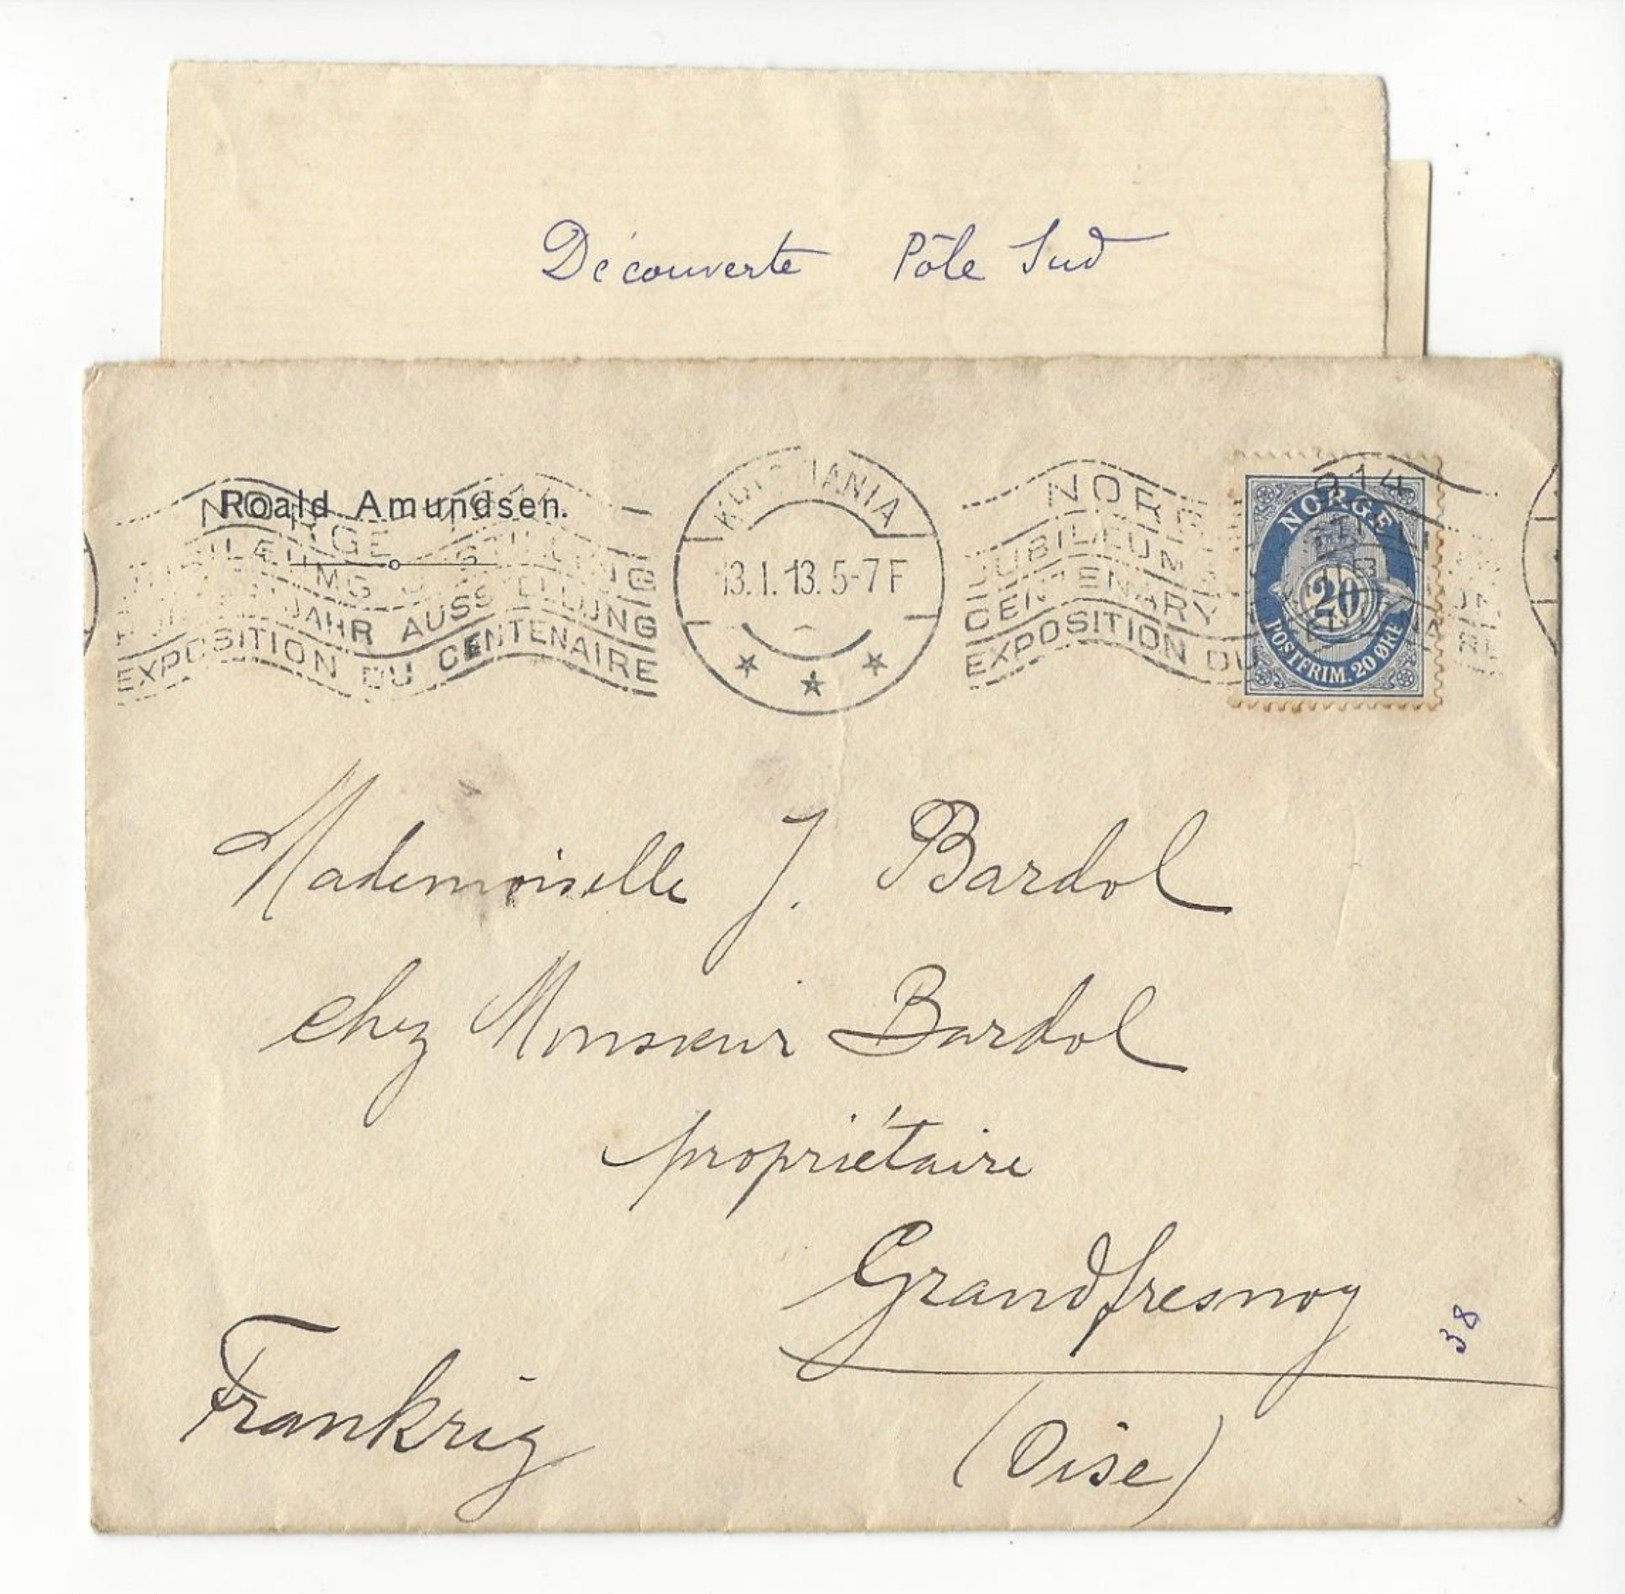 Découverte Pôle Sud
Roald Amundsen.
KRISTIANIA
13.I.13. 5-7 F
NORGE
JUBILÆUMS
JAHR AUSSTELLUNG
EXPOSITION DU CENTENAIRE
NORGE
JUBILÆUMS
CENTENARY
EXPOSITION DU
914
NORGE
20
POSTFRIM. 20 ØRE
Mademoiselle J. Bardol
chez Monsieur Bardol
propriétaire
Grandfresnoy
38
Frankrig
(Oise)